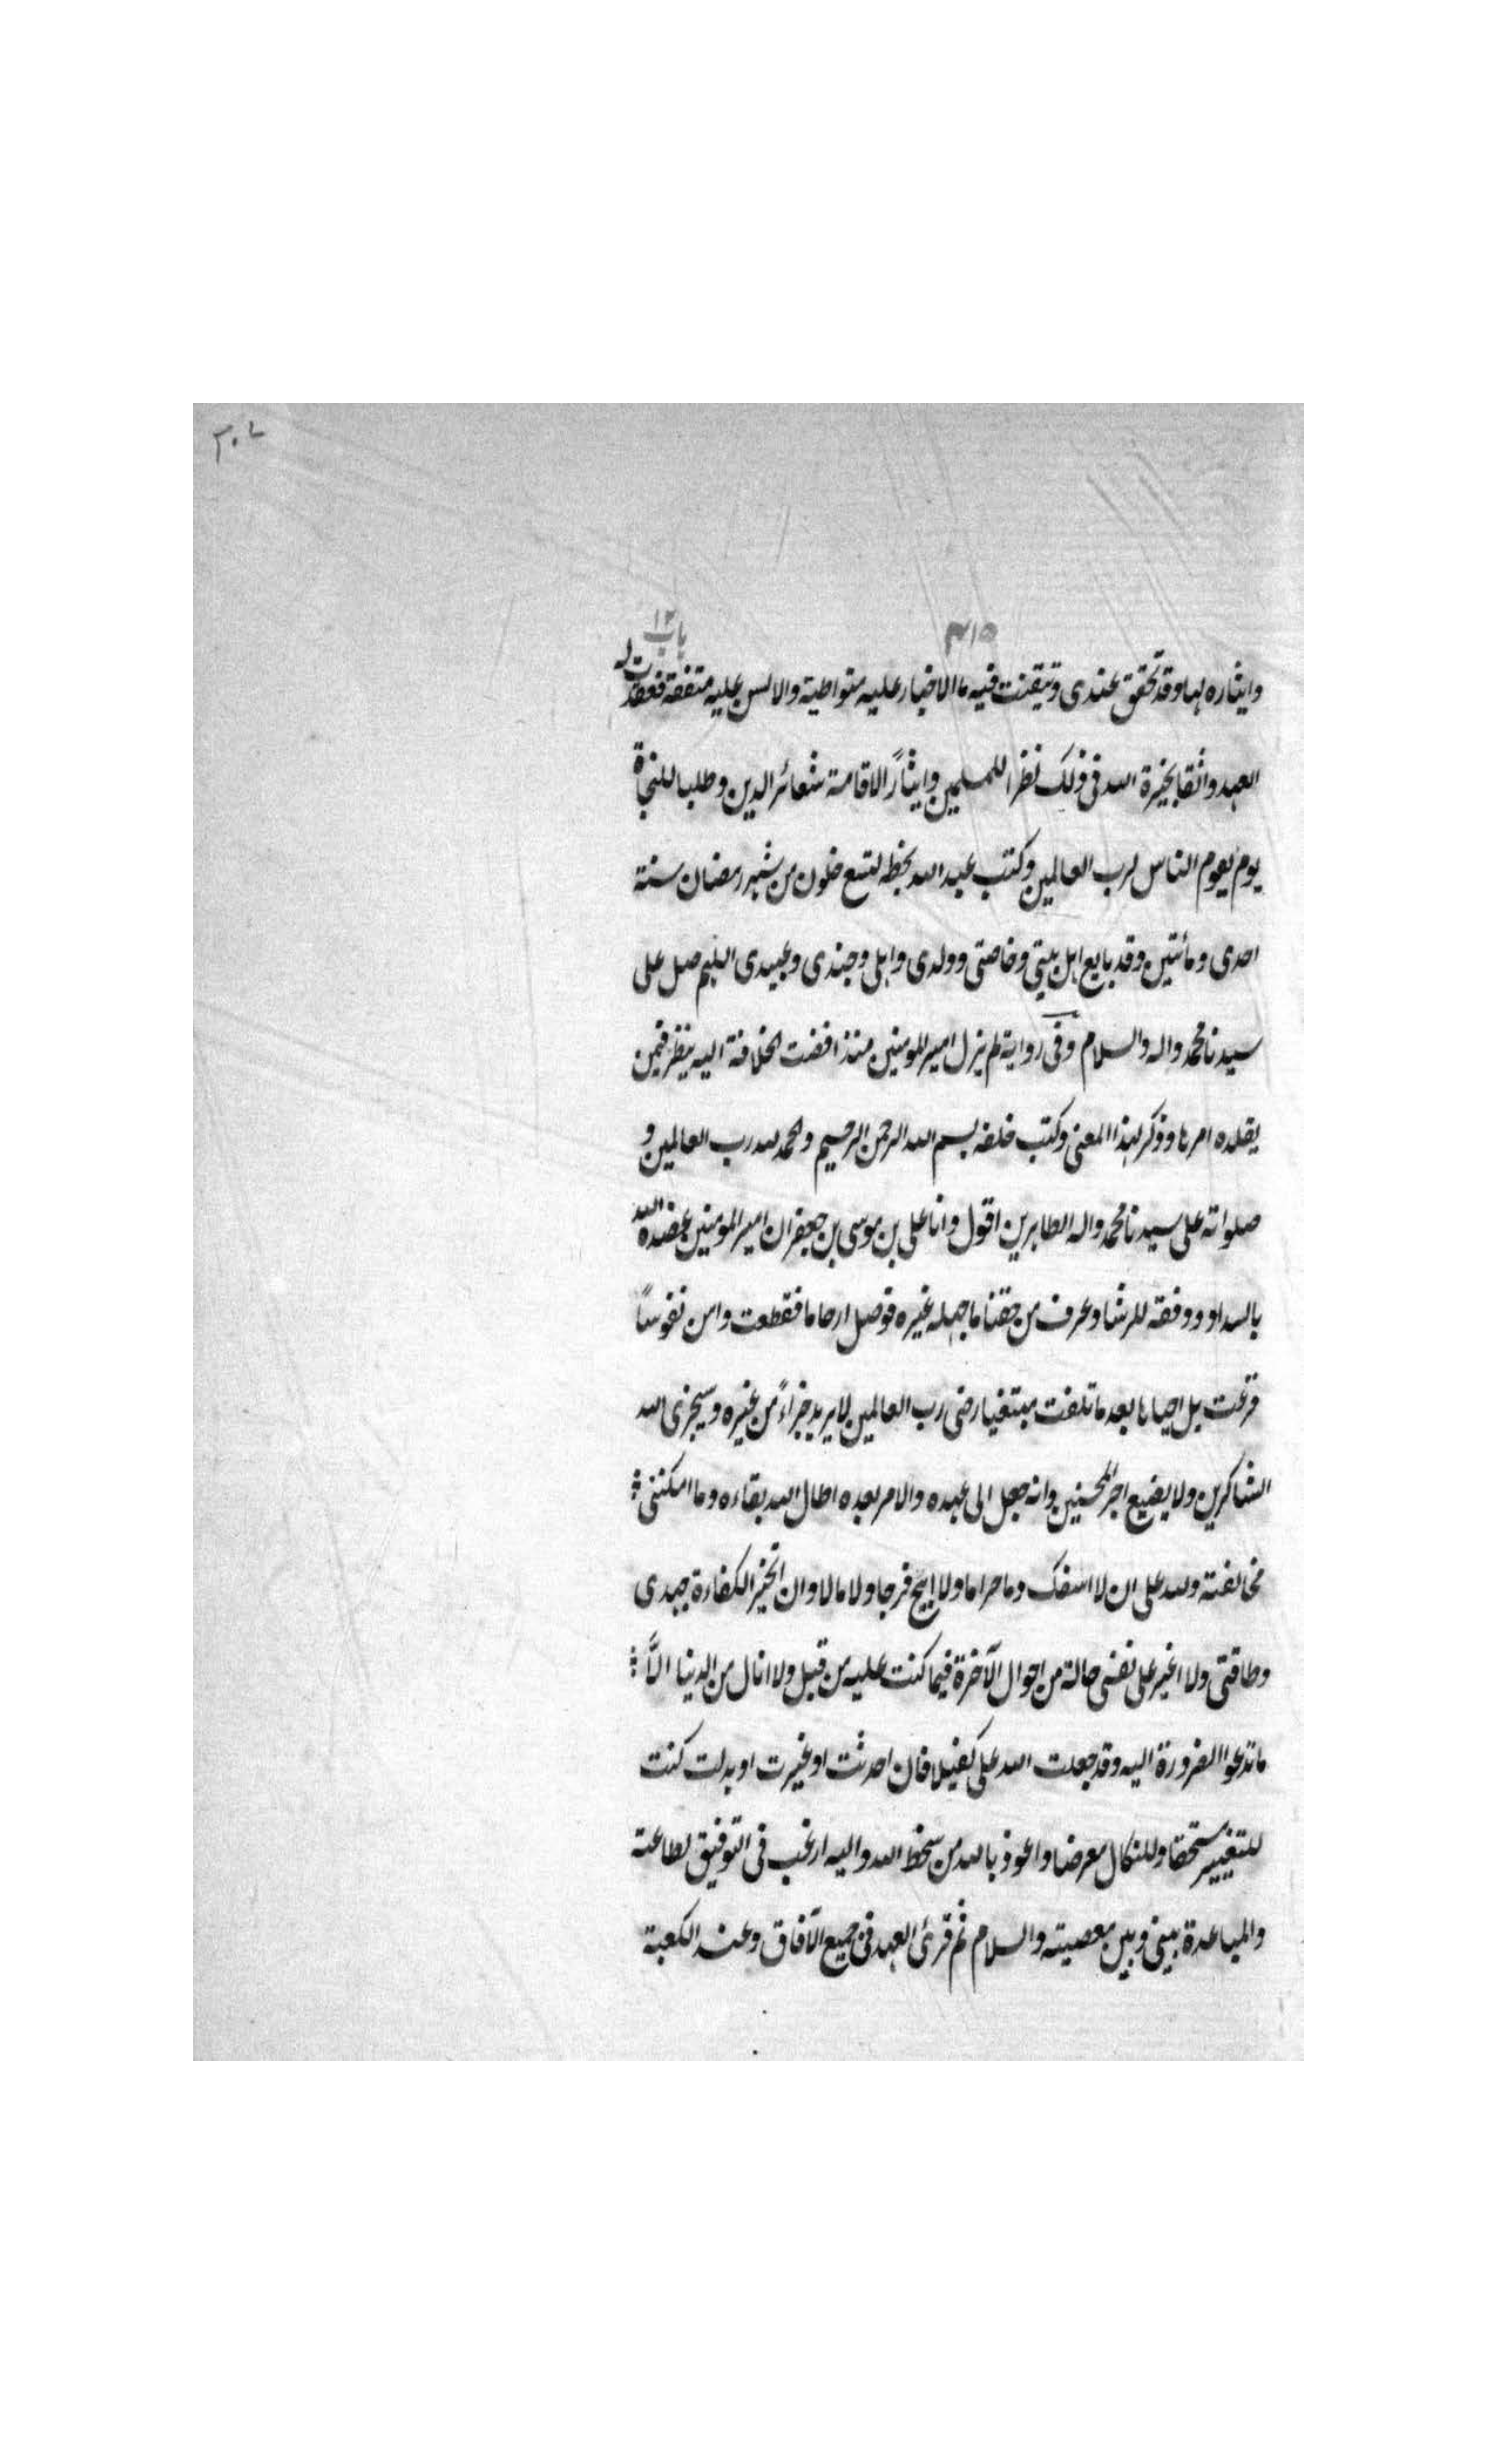 ٣٠٧
٣١٥
باب ١٢
وايثاره لها وقد تحقق عندى وتيقنت فيه ما الاخبار عليه متواطية والالسن عليه متفقة فعقدت له
العهد واثقا بخيرة الله فى ذلك نظرا للمسلمين وايثارًا لاقامة شعائر الدين وطلبا للنجاة
يوم يقوم الناس لرب العالمين وكتب عبد الله بخطه لتسع خلون من شهر رمضان سنة
احدى ومأتين وقد بايع اهل بيتي وخاصتى وولدى واهلى وجندى وعبيدى اللهم صل على
سيدنا محمد واله والسلام وفى رواية لم يزل امير المومنين منذ افضت الخلافة اليه ينظر فيمن
يقلده امرها وذكر لهذا المعنى وكتب خلفه بسم الله الرحمن الرحيم والحمد لله رب العالمين و
صلواته على سيدنا محمد واله الطاهرين اقول وانا على بن موسى بن جعفر ان امير المومنين عضده الله
بالسداد ووفقه للرشاد عرف من حقنا ما جهله غيره فوصل ارحاما قطعت وامن نفوسًا
فزعت بل احياها بعد ما تلفت مبتغيا رضى رب العالمين لا يريد جزاءً من غيره وسيجزى الله
الشاكرين ولا يضيع اجر المحسنين وانه جعل الى عهده والامر بعده اطال الله بقاءه وما امكننى
مخالفته ولله على ان لا اسفك دما حراما ولا ابيح فرجا ولا مالا وان اتخير الكفاءة جهدى
وطاقتى ولا اغير على نفسى حالة من احوال الآخرة فيما كنت عليه من قبل ولا انال من الدنيا الَّا
ما تدعوا الضرورة اليه وقد جعلت الله على كفيلا فان احدثت او غيرت او بدلت كنت
للتغيير مستحقا وللنكال معرضا واعوذ بالله من سخط الله واليه ارغب فى التوفيق لطاعته
والمباعدة بينى وبين معصيته والسلام ثم قرئ العهد فى جميع الآفاق وعند الكعبة